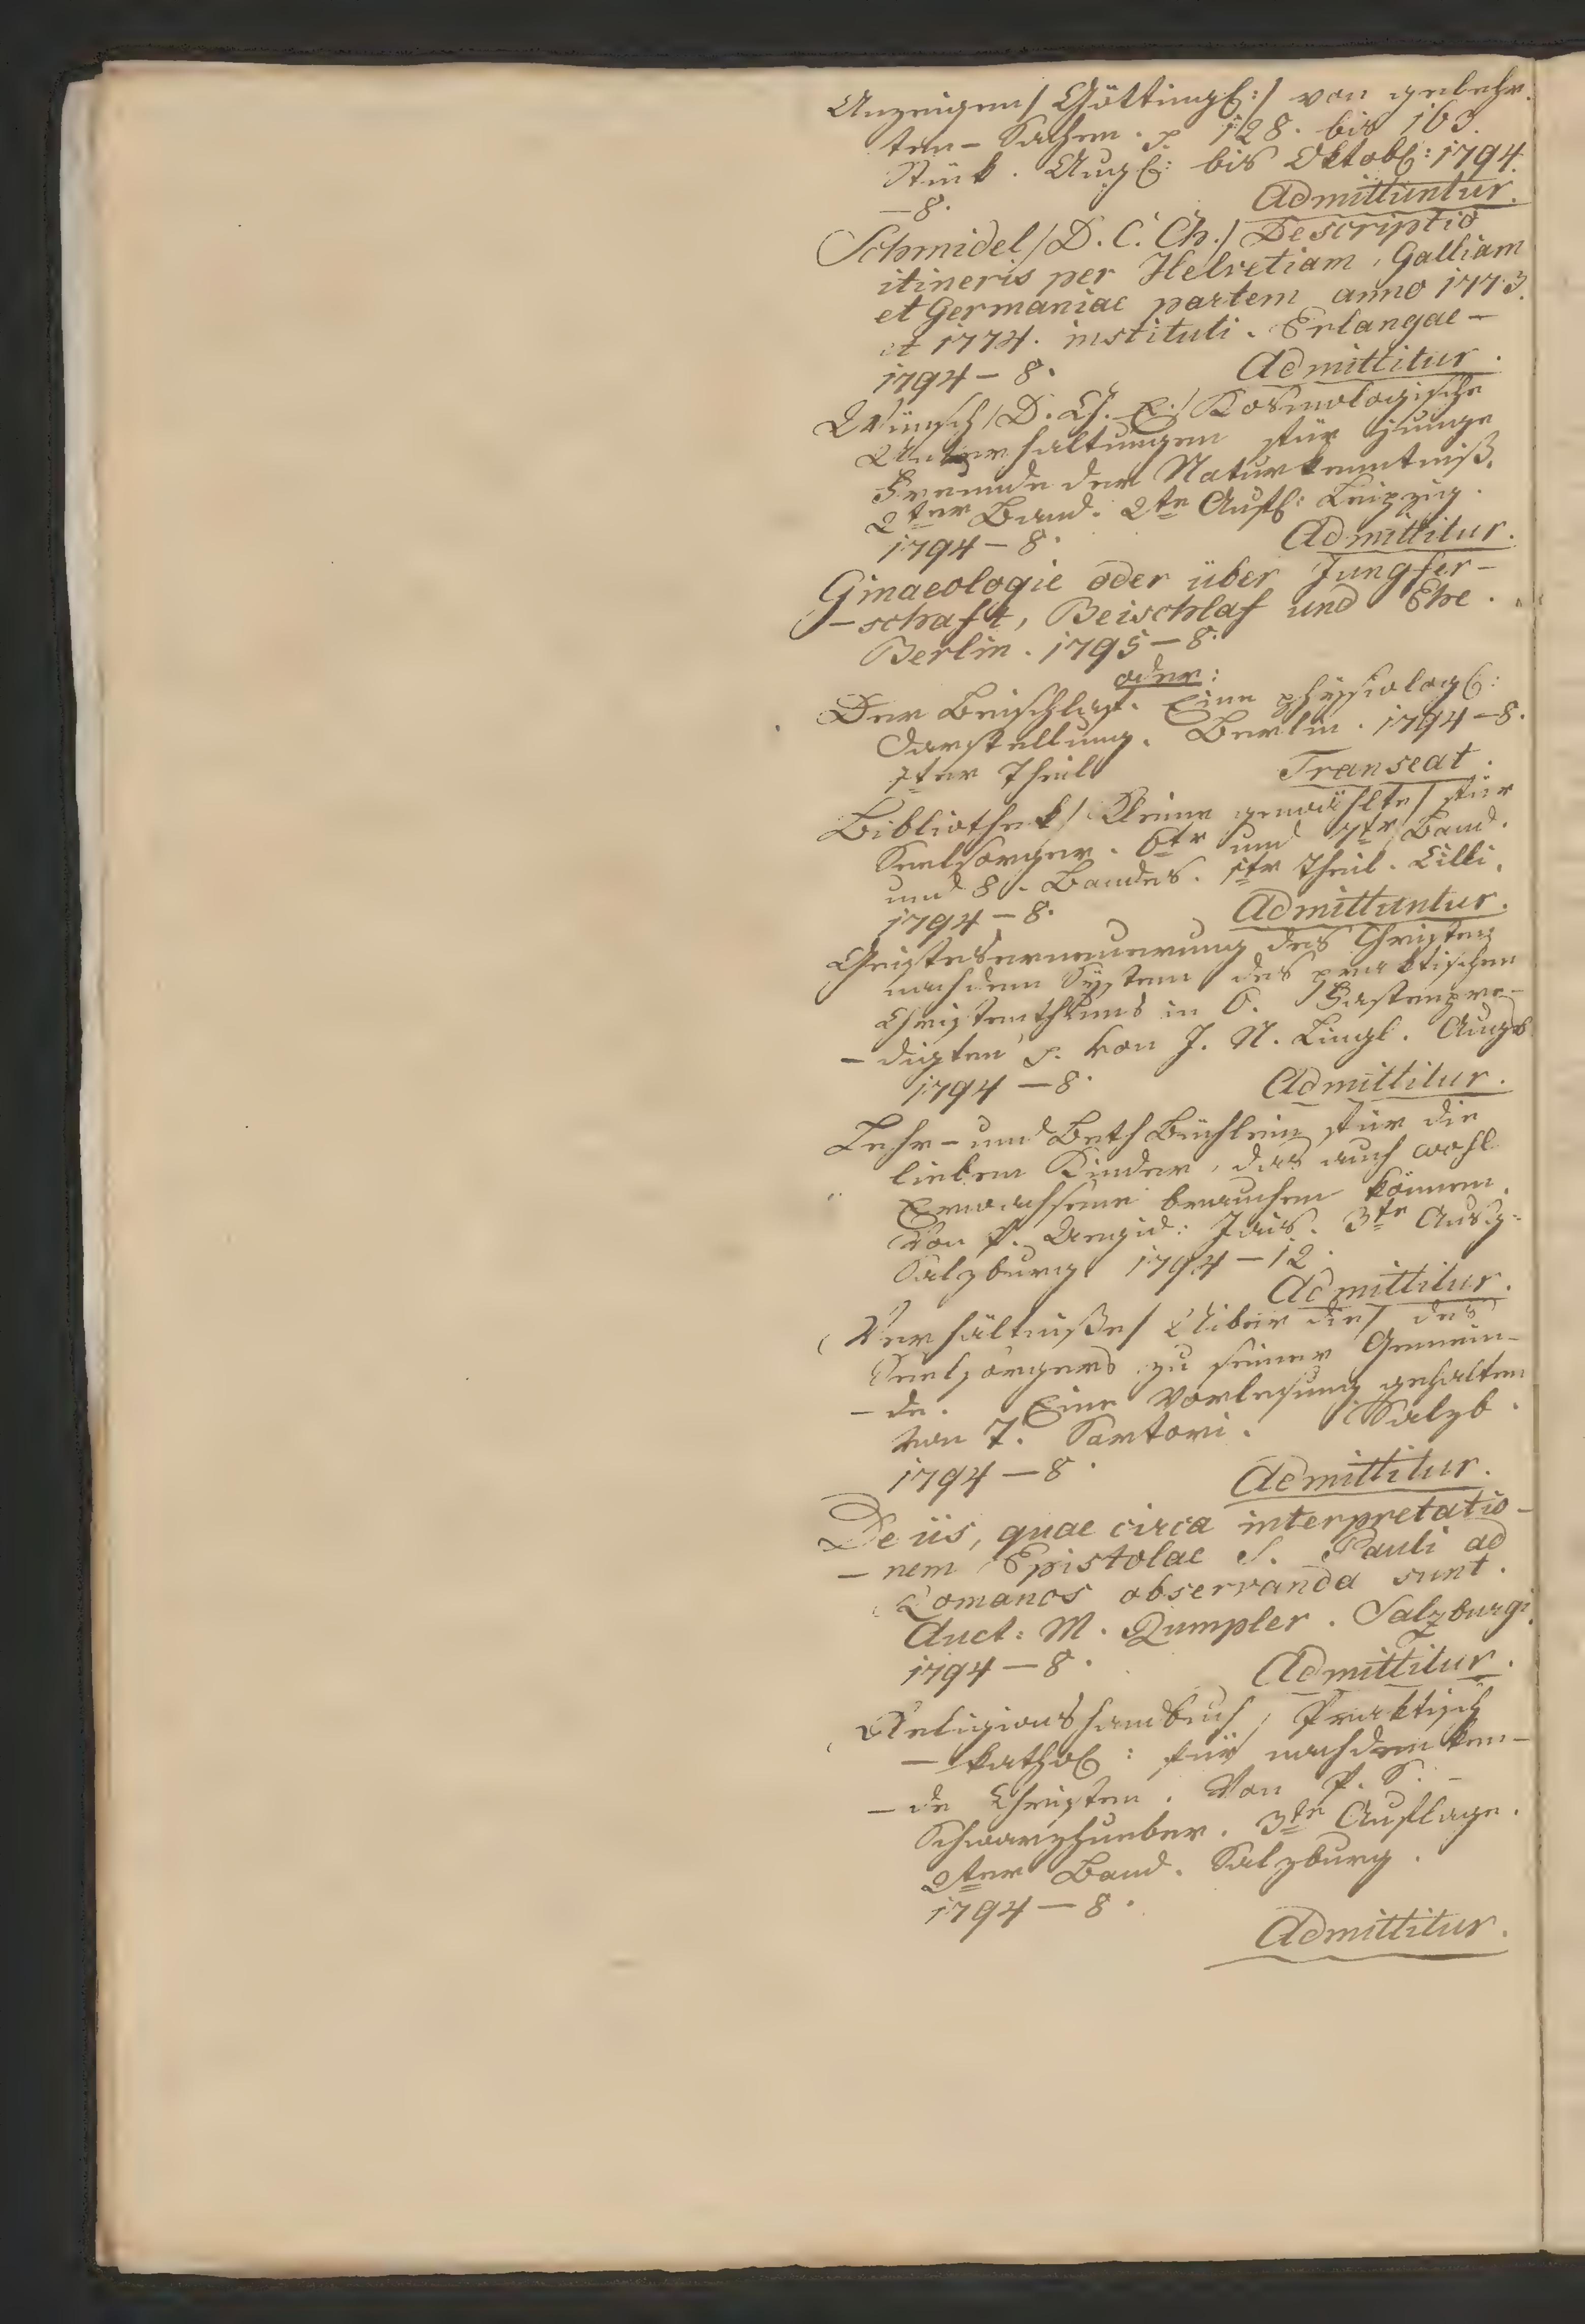 Anzeigen/ Götting: / von gelehr-
ten- Sachen. p 128. bis 163.
Stük. Aug: bis Oktob: 1794.
—8. Admittuntur.
Schmidel/ D. C. Ch./ Descriptio
itineris per Helvetiam, Galliam
et Germaniae partem anno 1773.
et 1774. instituti. Erlangae —
1794 — 8. Admittitur.
Wünsch/ D. Ch. E./ Kosmologische
Unterhaltungen für junge
Freunde der Naturkenntniß.
2ter Band. 2te Aufl: Leipzig.
1794 — 8. Admittitur.
Ginaeologie oder über Jungfer-
-schaft, Beischlaf und Ehe.
Berlin. 1795 — 8.
oder:
Der Beischlaf. Eine physiolog:
Darstellung. Berlin. 1794 — 8.
1ter Theil Transeat.
Bibliothek/ Kleine gewählte/ für
Seelsorger. 6tr und 7tr Band.
und 8. Bandes. 1tr Theil. Cilli.
1794 — 8. Admittuntur.
Geisteserneuerung des Christen
nach dem System des praktischen
Christenthums in 6. Fastenpre-
- digten p. von J. N. Lingl. Augsb.
1794 — 8. Admittitur.
Lehr- und Beth Büchlein für die
lieben Kinder, das auch wohl
Erwachsene brauchen können.
Von P. Aegid: Jais. 3te Ausg:
Salzburg 1794 — 12.
Admittitur.
Verhältniße/ Uiber die/ des
Seelsorgers zu seiner Gemein-
- de. Eine Vorlesung gehalten
von T. Sartori. Salzb.
1794 — 8. Admittitur.
De iis, quae circa interpretatio-
- nem Epistolae S. Pauli ad
Romanos observanda sunt.
Auct: M. Rumpler. Salzburgi.
1794 — 8. Admittitur.
Religionshandbuch, Praktisch
— kathol: für nachdenken-
- de Christen. Von P. S. -
Schwarzhueber. 3te Auflage.
2ter Band. Salzburg.
1794 — 8.
Admittitur.